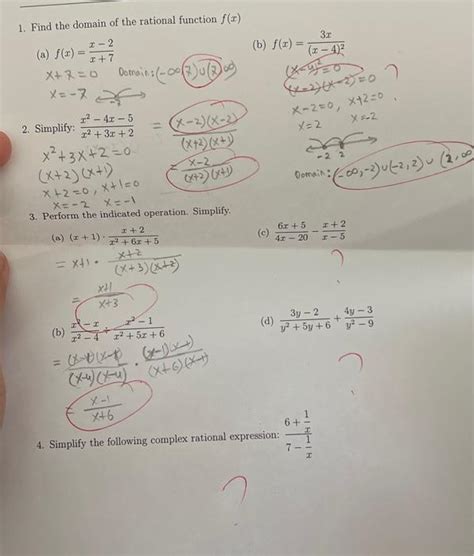 1. Find the domain of the rational function f(x)
(a) f(x) = \frac{x-2}{x+7}
x+7=0 Domain: (-∞ 7)∪(7 ∞)
x=-7
-7
(b) f(x) = \frac{3x}{(x-4)^2}
(x-4)^2=0
(x-2)(x-2)=0 ?
x-2=0, x+2=0
x=2 x=-2
-2 2
Domain: (-∞,-2)∪(-2,2)∪(2,∞
2. Simplify: \frac{x^2-4x-5}{x^2+3x+2} = \frac{(x-2)(x-2)}{(x+2)(x+1)}
x^2+3x+2=0
= \frac{x-2}{(x+2)(x+1)}
(x+2)(x+1)
x+2=0, x+1=0
x=-2 x=-1
3. Perform the indicated operation. Simplify.
(a) (x+1) · \frac{x+2}{x^2+6x+5}
= x+1 · \frac{x+2}{(x+3)(x+2)}
= \frac{x+1}{x+3}
(c) \frac{6x+5}{4x-20} - \frac{x+2}{x-5}
?
(b) \frac{x^2-x}{x^2-4} ÷ \frac{x^2-1}{x^2+5x+6}
= \frac{x-1}{x+6}
(d) \frac{3y-2}{y^2+5y+6} + \frac{4y-3}{y^2-9}
?
4. Simplify the following complex rational expression: \frac{6+\frac{1}{x}}{7-\frac{1}{x}}
?